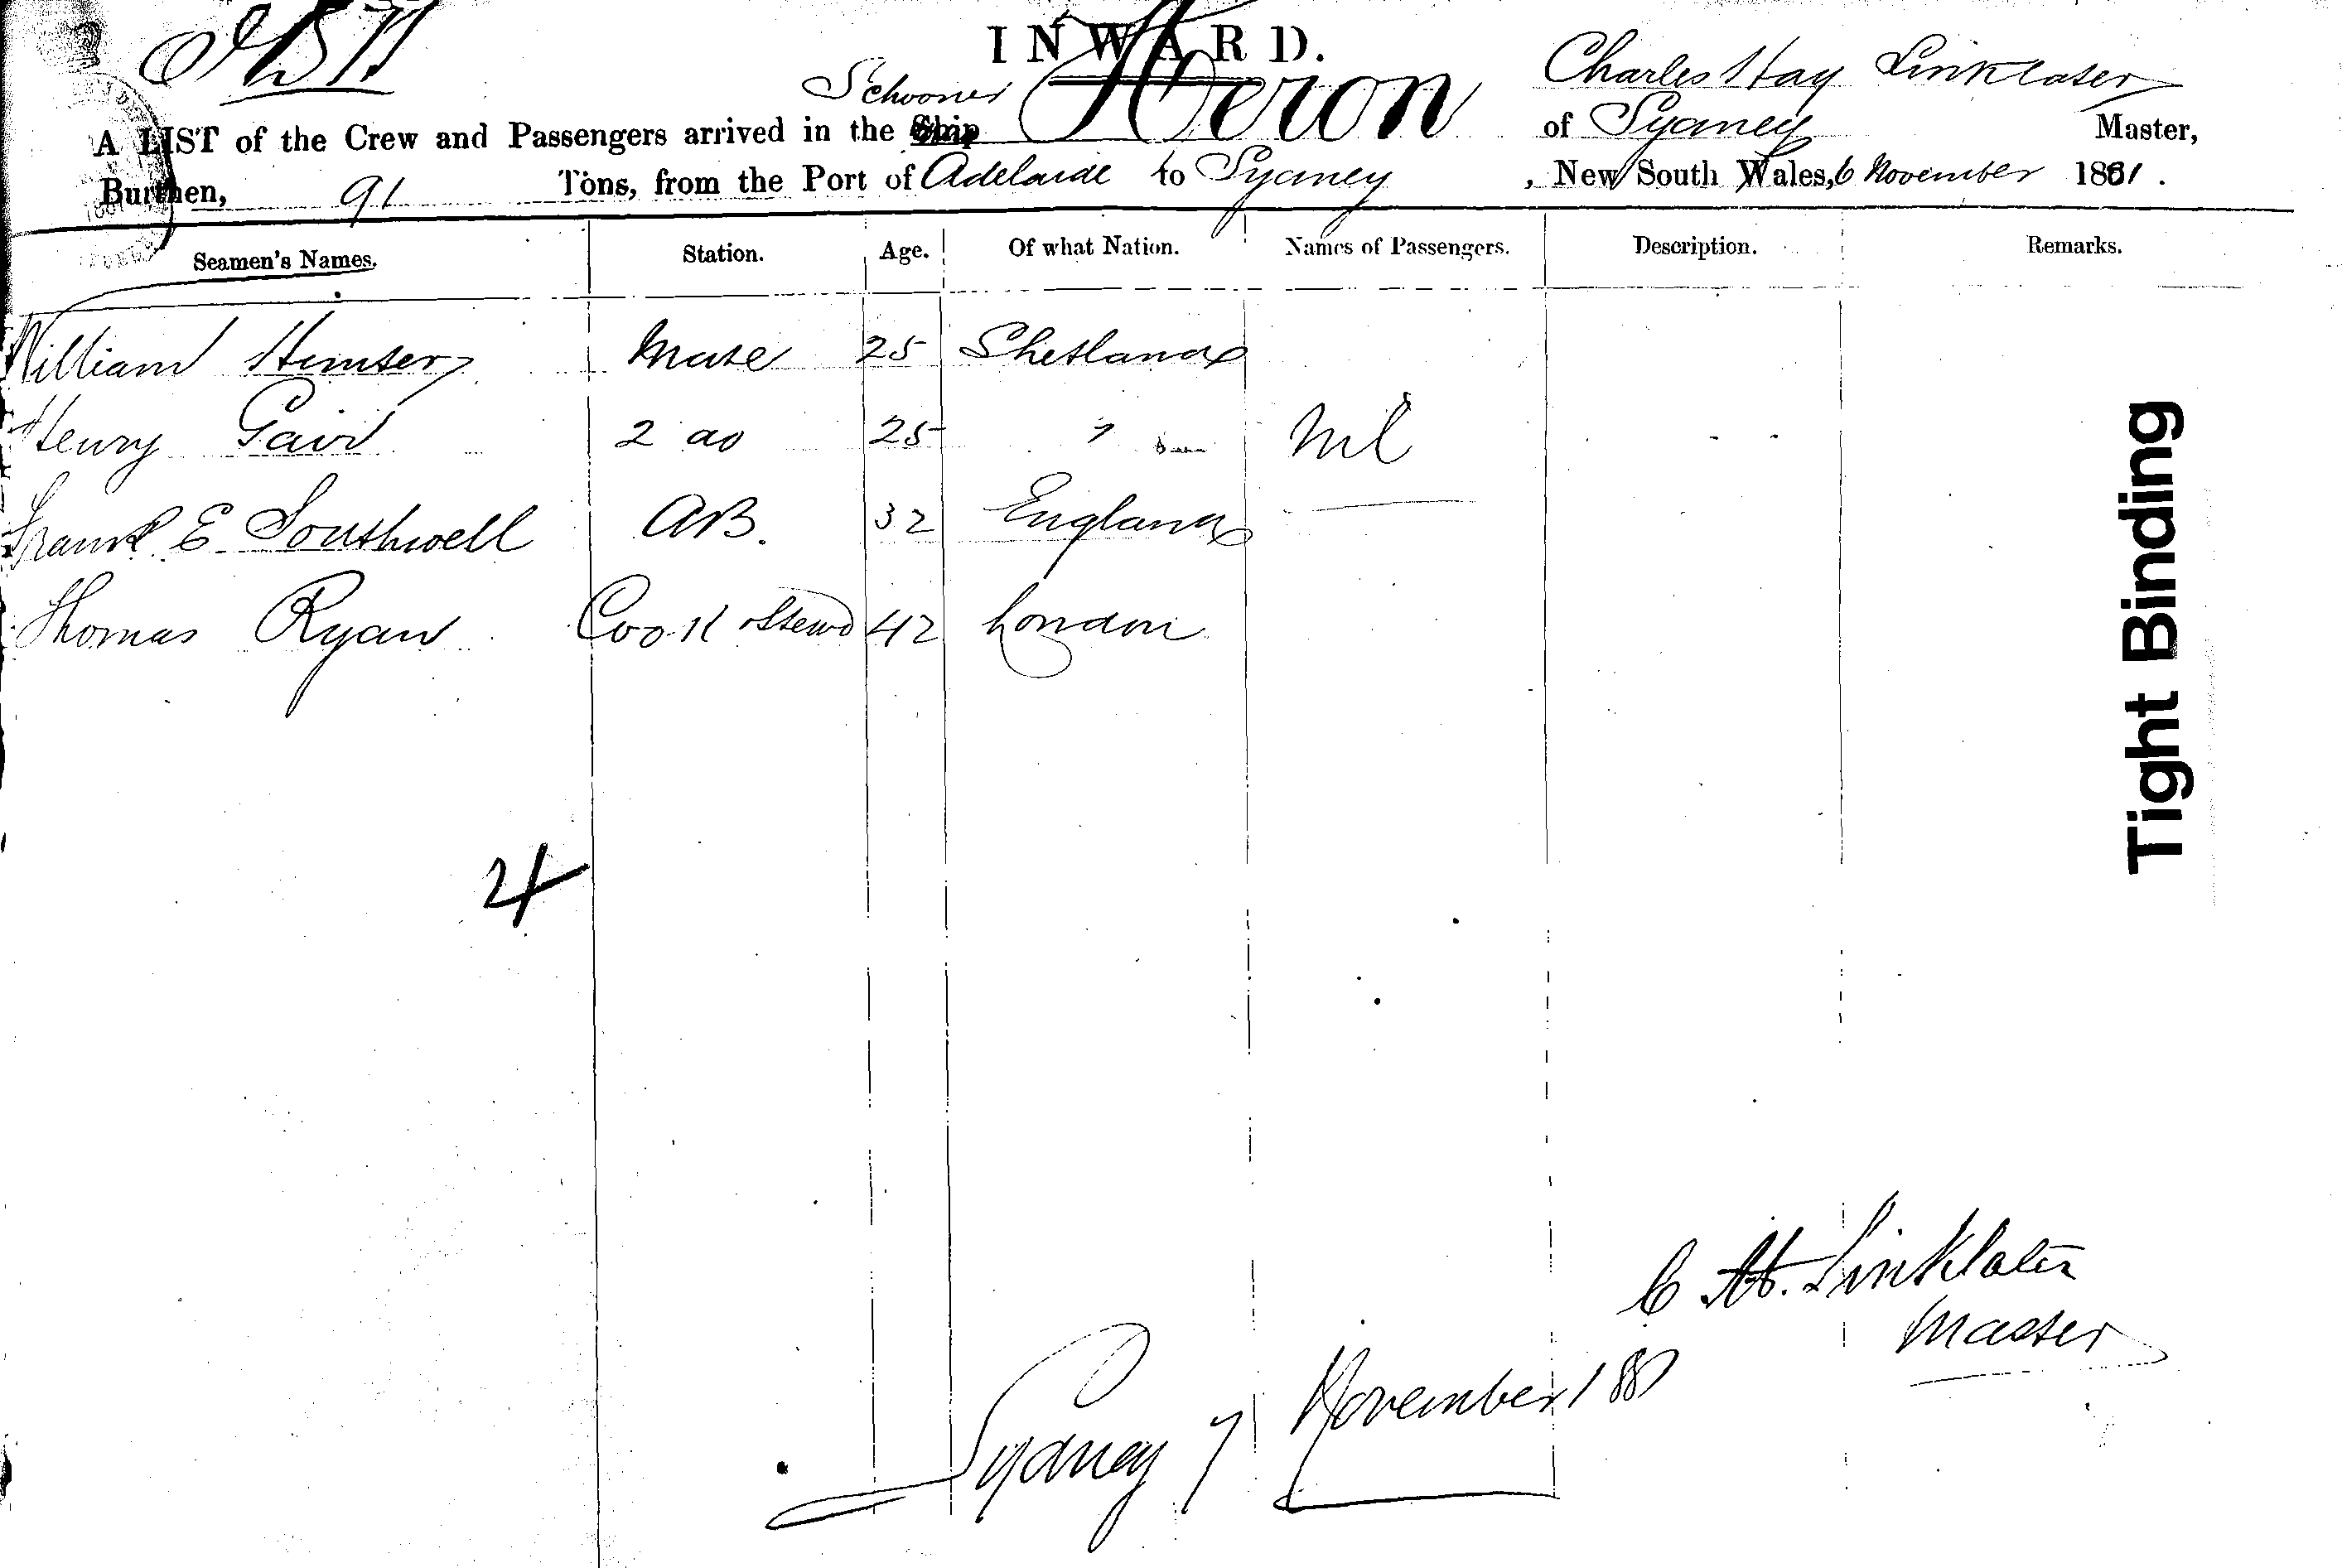 INWARD.
A LIST of the Crew and Passengers arrived in the Ship Schooner Heron of Sydney Charles Hay Linklater Master,
Burthen, 91 Tons, from the Port of Adelaide to Sydney, New South Wales, 6 November 1881.
Seamen's Names. Station. Age. Of what Nation. Names of Passengers. Description. Remarks.
William Hunter Mate 25 Shetland
Henry Gair 2 do 25 " Nil
Frank E Southwell AB. 32 England
Thomas Ryan Cook & Stewd 42 London
4
Tight Binding
C H. Linklater
Master
Sydney 7 November 1881